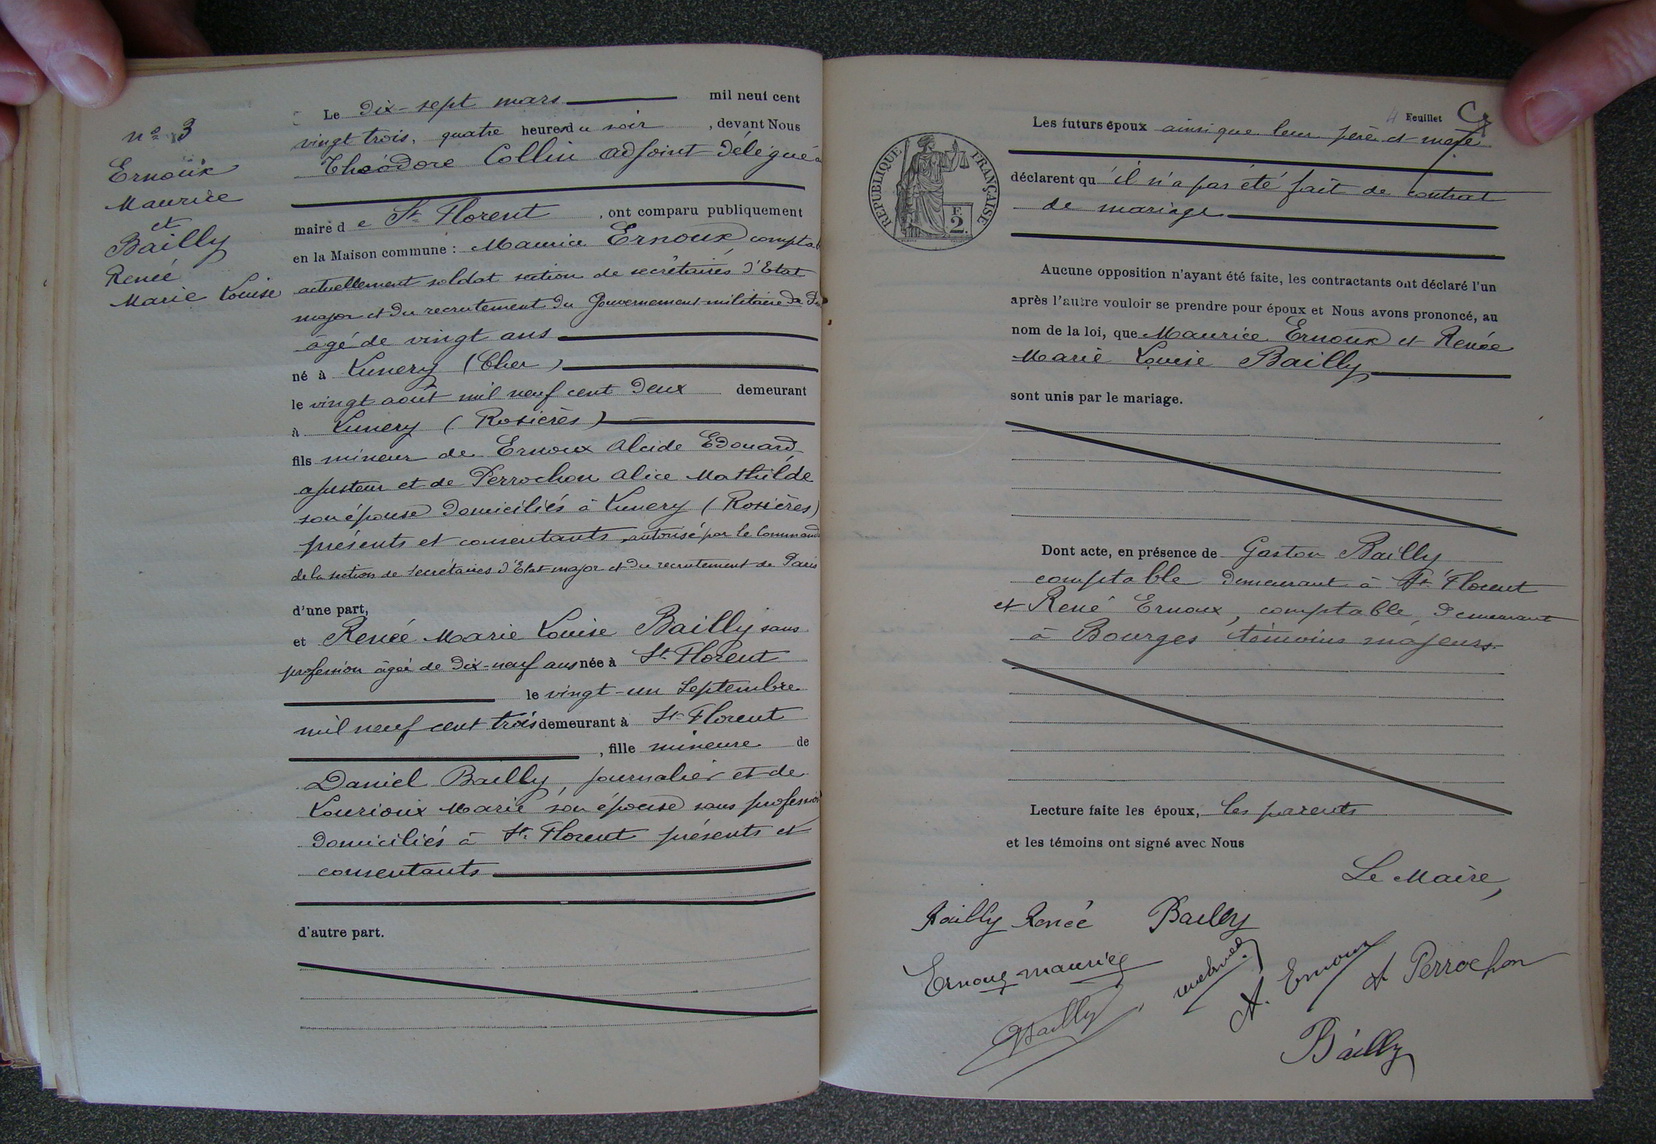 n° 3
Ernoux
Maurice
et
Bailly
Renée
Marie Louise
Le dix-sept mars mil neuf cent
vingt trois, quatre heures du soir, devant Nous
Théodore Collin adjoint délégué
maire de St Florent, ont comparu publiquement
en la Maison commune : Maurice Ernoux compta
actuellement soldat section de secrétaires d'Etat
major et du recrutement du Gouvernement militaire de
agé de vingt ans
né à Lunery (Cher)
le vingt août mil neuf cent deux demeurant
à Lunery (Rosières)
fils mineur de Ernoux Alcide Edouard
ajusteur et de Perrochon Alice Mathilde
son épouse domiciliés à Lunery (Rosières)
présents et consentants autorisé par le Command
de la section de secrétaires d'Etat-major et du recrutement de Paris
d'une part,
et Renée Marie Louise Bailly sans
profession âgée de dix-neuf ans née à St Florent
le vingt-un Septembre
mil neuf cent trois demeurant à St Florent
, fille mineure de
Daniel Bailly, journalier et de
Lourioux Marie son épouse sans profession
domiciliés à St. Florent présents et
consentants
d'autre part.
4 Feuillet
RÉPUBLIQUE FRANÇAISE
F.
2.
Les futurs époux ainsi que leur père et mère
déclarent qu'il n'a pas été fait de contrat
de mariage
Aucune opposition n'ayant été faite, les contractants ont déclaré l'un
après l'autre vouloir se prendre pour époux et Nous avons prononcé, au
nom de la loi, que Maurice Ernoux et Renée
Marie Louise Bailly
sont unis par le mariage.
Dont acte, en présence de Gaston Bailly
comptable demeurant à St. Florent
et René Ernoux, comptable, demeurant
à Bourges témoins majeurs.
Lecture faite les époux, les parents
et les témoins ont signé avec Nous
Le Maire,
Bailly Renée Bailly
Ernoux Maurice
A. Ernoux
A Perrochon
Bailly
Bailly